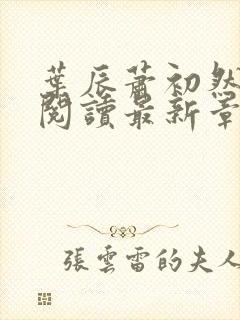 葉辰蕭初然
閱讀最新章
張雲雷的夫人